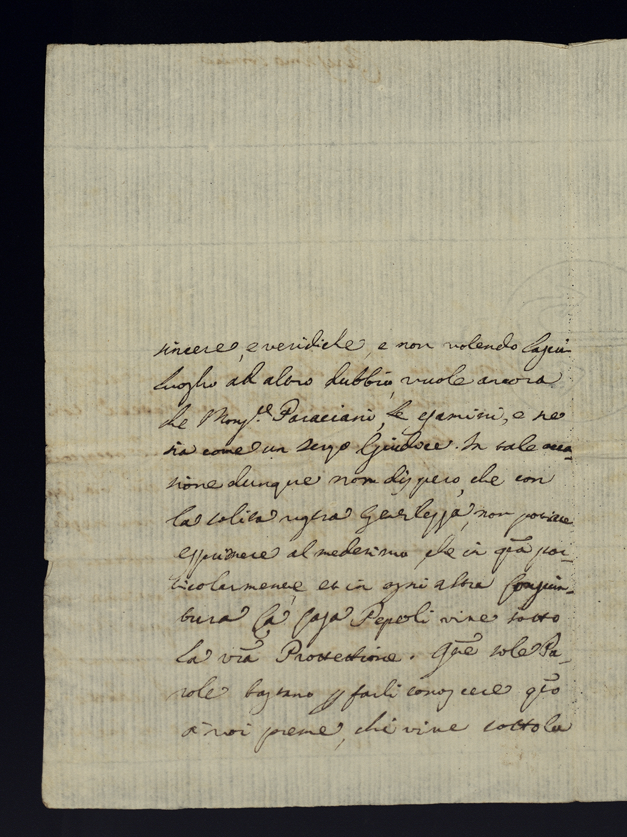 sincere, e veridiche, e non volendo lasciar
luogho ad altro dubbio, vuole ancora
che Monsr.e Paraciani, le esamini, e ne
sia come un terzo Giudice. In tale occa-
sione dunque non dispero, che con
la solita vostra Gentilezza, non possiate
esprimere al medesimo che in qta par-
ticolarmente, et in ogni altra congiun-
tura la Casa Pepoli vive sotto
la vra Protettione. Que sole Pa-
role bastano p farli conoscere qto
à voi preme, chi vive sotto la